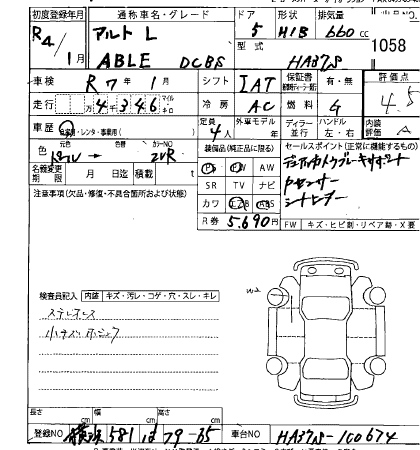 初度登録年月 通称車名・グレード ドア 形状 排気量
R4/1月 アルト L 5 H/B 660cc
ABLE DCBS 型式 HA37S 1058
車検 R7年1月 シフト IAT 保証書 有・無 評価点
走行 4,346 マイル キロ 冷房 AC 燃料 G 4.5
車歴 自家用・レンタ・事業用( ) 定員 4人 外車モデル ディーラー 並行 ハンドル 左・右 内装評価 A
色 元色 色替 カラーNO ZVR 装備品(純正品に限る) セールスポイント(正常に機能するもの)
名義変更期限 月 日迄 積載 t PS PW AW
デュアルカメラブレーキサポート
注意事項(欠品・修復・不具合箇所および状態) SR TV ナビ Pセンサー
カワ エアB ABS シートヒーター
R券 5,690 FW キズ・ヒビ割・リペア跡・X要
検査員記入 内装 キズ・汚レ・コゲ・穴・スレ・キレ
ステレオレス
長さ cm 幅 cm 高さ cm
登録NO 横浜 581 ほ 79-85 車台NO HA37S-100674